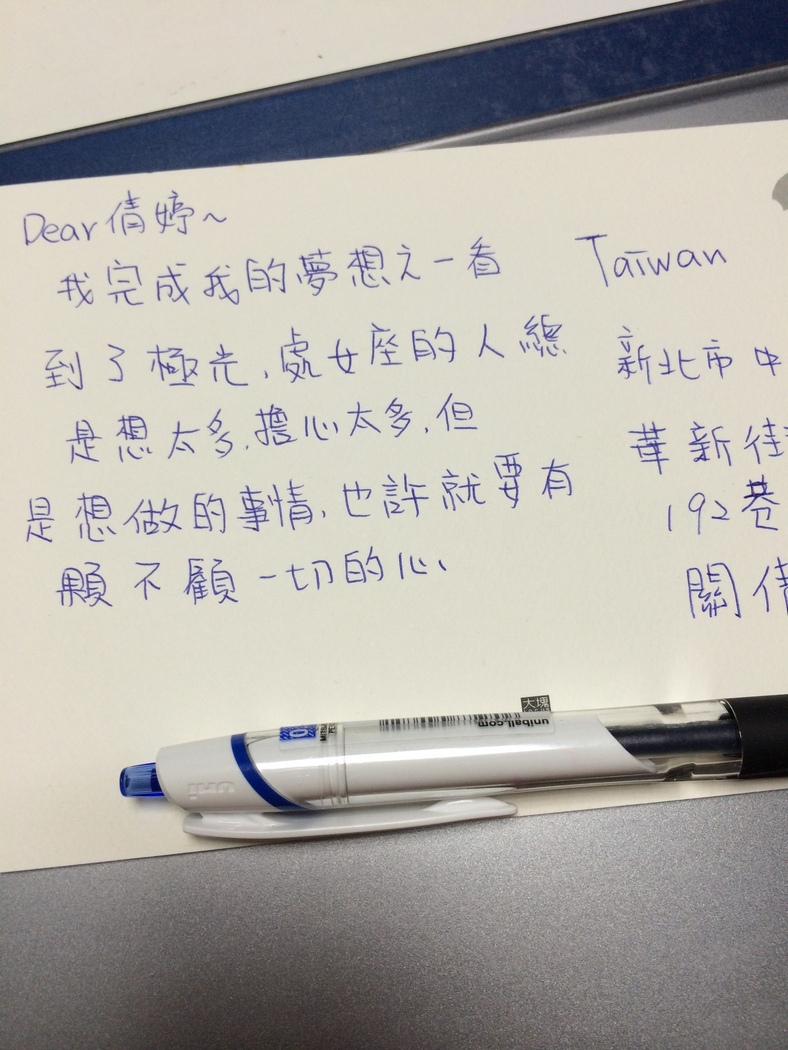 Dear 倩婷~
我完成我的夢想之一看
到了極光,處女座的人總
是想太多,擔心太多,但
是想做的事情,也許就要有
顆不顧一切的心、
Taiwan
新北市中
華新街
192巷
關倩
大塊
uniball.com
uni